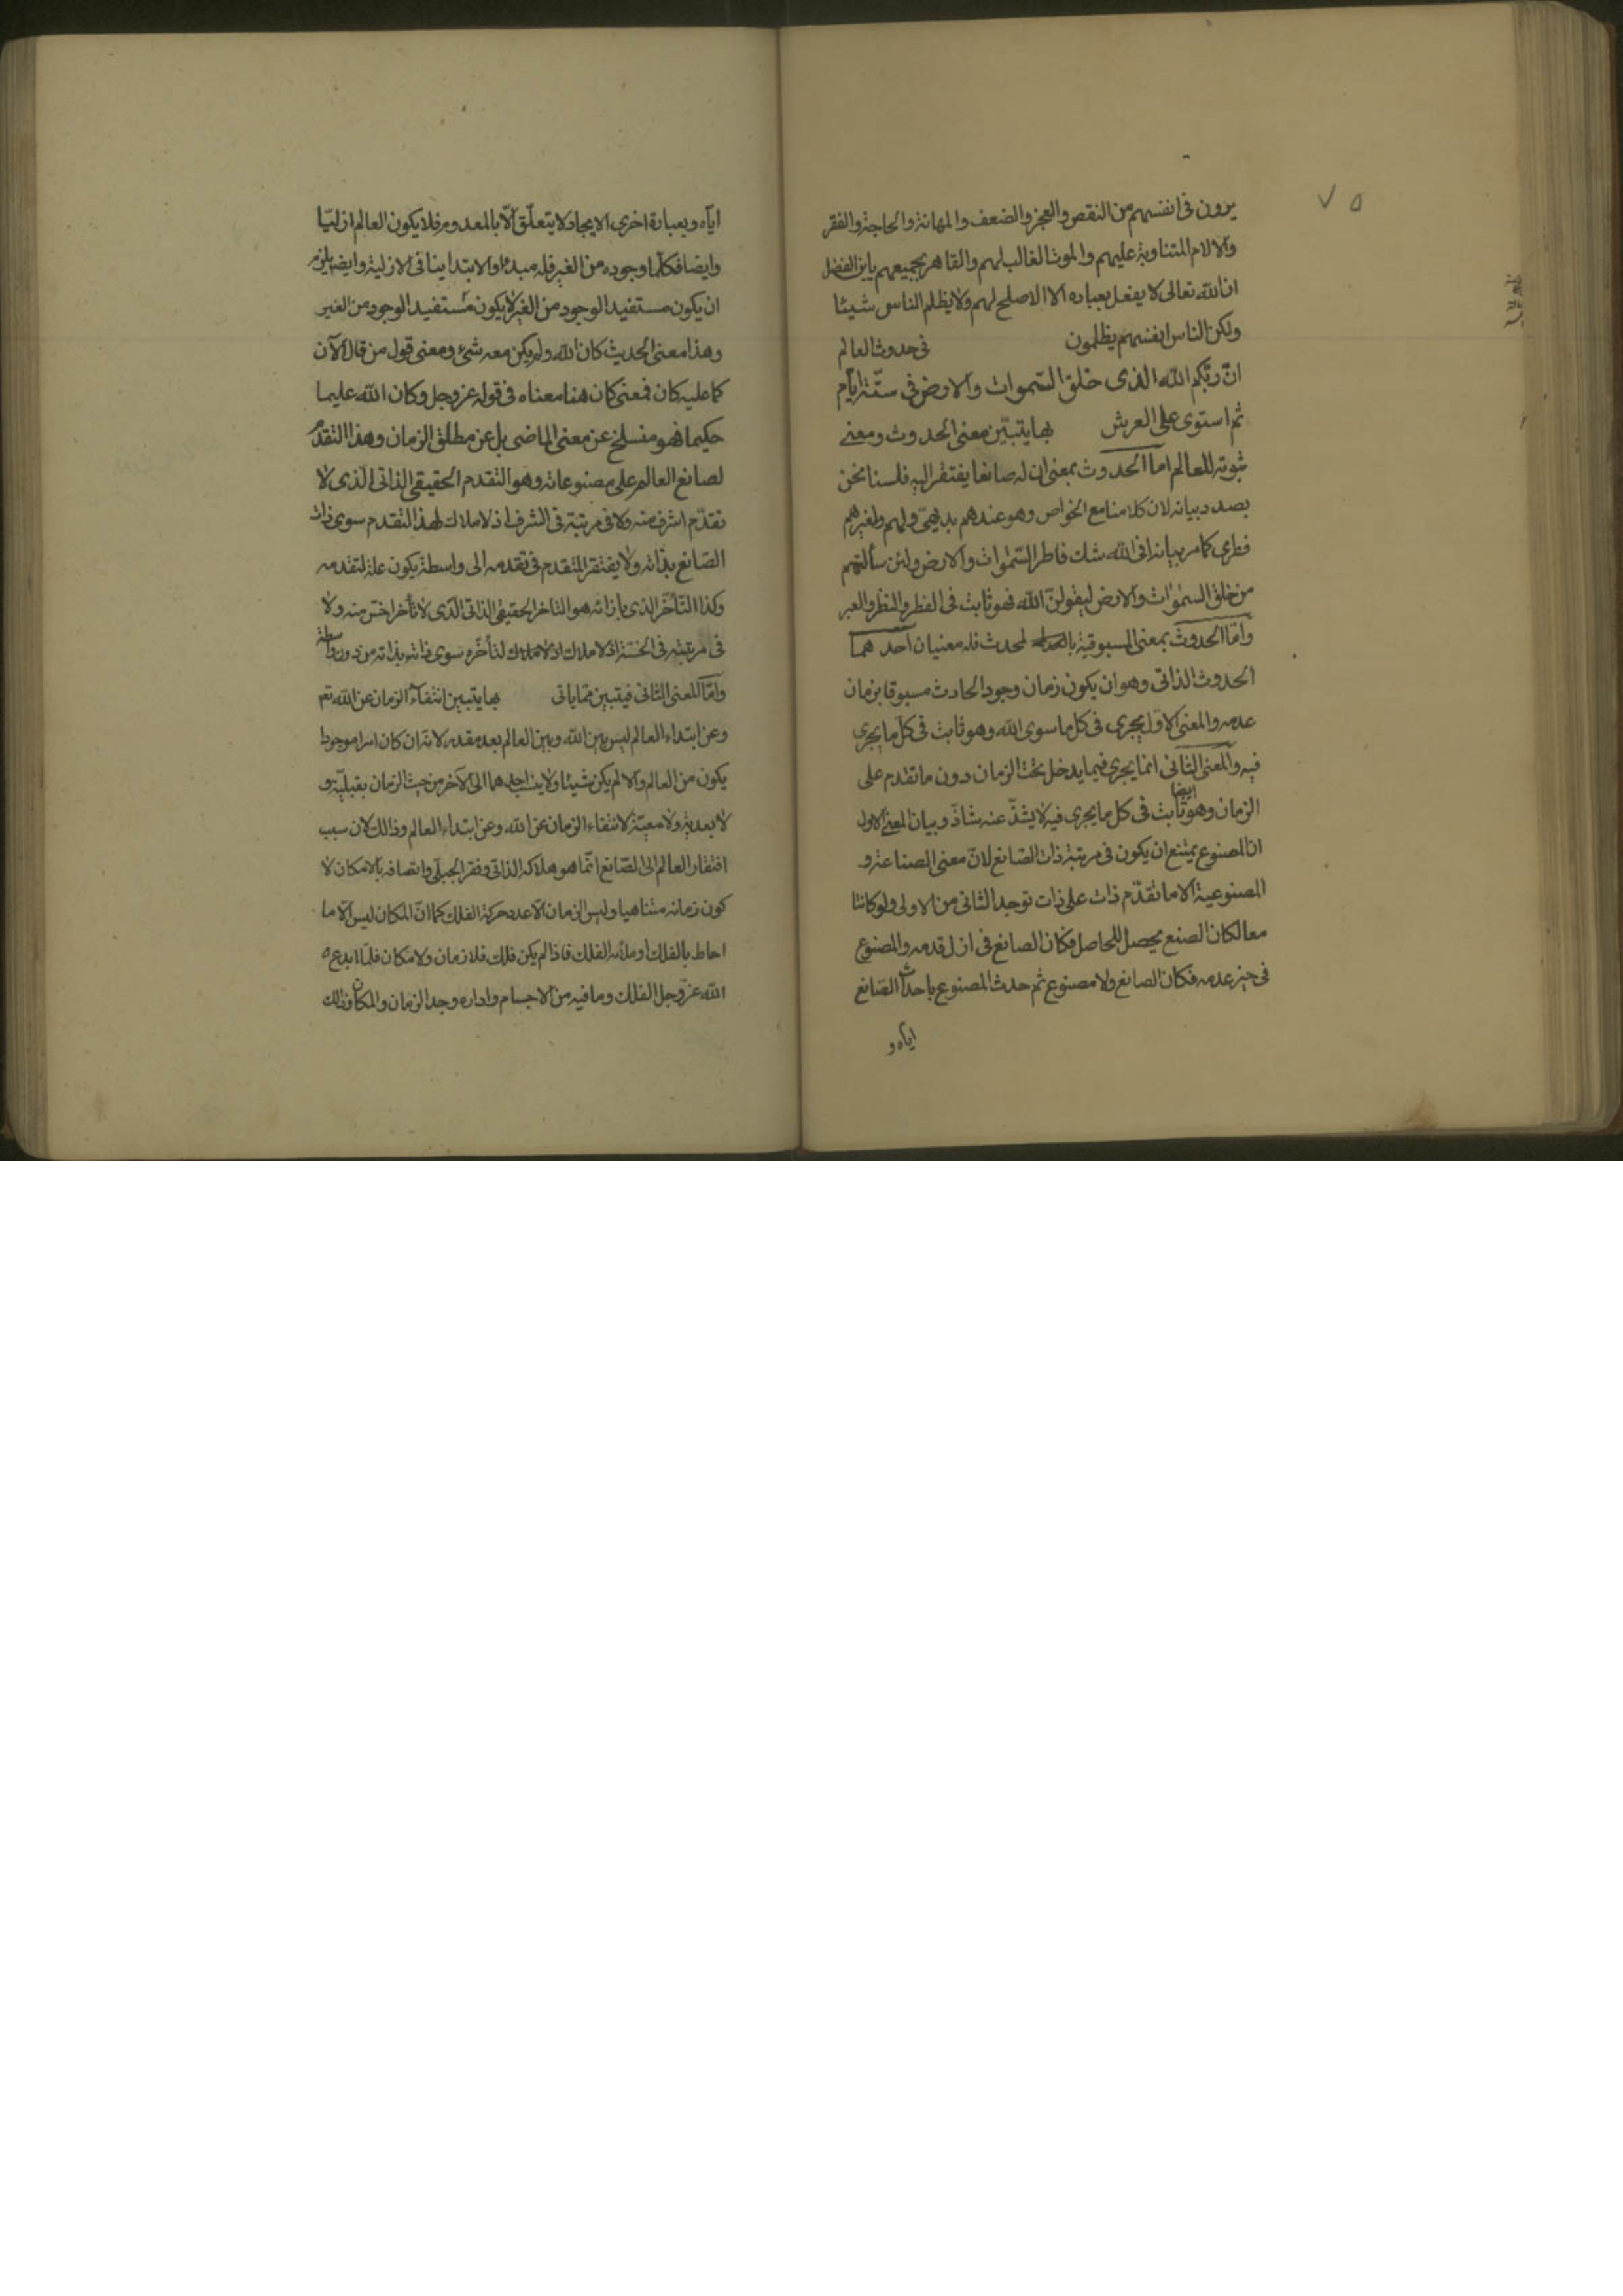 ٧٥
يرون فى انفسهم من النقص والعجز والضعف والمهانة والحاجة والفقر
والالام المتناوبة عليهم والموت الغالب لهم والقاهر بجميعهم يا بن الفضل
ان الله تعالى لا يفعل بعباده الا الاصلح لهم ولا يظلم الناس شيئا
ولكن الناس انفسهم يظلمون فى حدوث العالم
ان ربكم الله الذى خلق السموات والارض فى ستة ايام
ثم استوى على العرش بها يتبين معنى الحدوث ومعنى
ثبوته للعالم اما الحدوث بمعنى ان له صانعا يفتقر اليه فلسنا نحن
بصدد بيانه لان كلامنا مع الخواص وهو عندهم بديهى ولهم ولغيرهم
فطرى كما مر بيانه افى الله شك فاطر السموات والارض ولئن سألتهم
من خلق السموات والارض ليقولن الله فهو ثابت فى الفطر والنظر والعبر
واما الحدوث بمعنى المسبوقية لمحدث فله معنيان احدهما
الحدوث الذاتى وهو ان يكون زمان وجود الحادث مسبوقا بزمان
عدمه والمعنى الاول يجرى فى كل ما سوى الله وهو ثابت فى كل ما يجرى
فيه والمعنى الثانى انما يجرى فيما يدخل تحت الزمان دون ما تقدم على
الزمان وهو ايضا ثابت فى كل ما يجرى فيه لا يشذ عنه شاذ وبيان المعنى الاول
ان المصنوع يمتنع ان يكون فى مرتبة ذات الصانع لان معنى الصناعة و
المصنوعية الا ما تقدم ذات على ذات توجد الثانى من الاولى ولو كانتا
معا لكان الصنع يحصل للحاصل فكان الصانع فى ازل قدمه والمصنوع
فى حيز عدمه فكان الصانع ولا مصنوع ثم حدث المصنوع باحداث الصانع
اياه و
اياه وبعبارة اخرى الايجاد لا يتعلق الا بالمعدوم فلا يكون العالم ازليا
وايضا فكلما وجوده من الغير فله مبدء والابتدا ينافى الازلية وايضا يلزم
ان يكون مستفيد الوجود من الغير لا يكون مستفيد الوجود من الغير
وهذا معنى الحديث كان الله ولم يكن معه شئ ومعنى قول من قال الآن
كما عليه كان فمعنى كان هنا معناه فى قوله عز وجل وكان الله عليما
حكيما فهو منسلخ عن معنى الماضى بل عن مطلق الزمان وهذا التقدم
لصانع العالم على مصنوعاته وهو التقدم الحقيقى الذاتى الذى لا
تقدم اشرف منه ولا فى مرتبة فى الشرف اذ لا ملاك لهذا التقدم سوى ذات
الصانع بذاته ولا يفتقر المتقدم فى تقدمه الى واسطة يكون علة لتقدمه
وكذا التأخر الذى بازائه هو التاخر الحقيقى الذاتى الذى لا تأخر اخس منه ولا
فى مرتبته فى الخسة اذ لا ملاك لتأخره سوى ذاته بذاته من دون واسطة
واما المعنى الثانى فيتبين مما ياتى بها يتبين انتفاء الزمان عن الله تعم
وعن ابتداء العالم ليس بين الله وبين العالم بعد مقدر لانه ان كان امرا موجودا
يكون من العالم والا لم يكن شيئا ولا ينسب احدهما الى الآخر من حيث الزمان بقبلية و
لا بعدية ولا معية لانتفاء الزمان عن الله وعن ابتداء العالم وذالك لان سبب
افتقار العالم الى الصانع انما هو هلاكه الذاتى وفقر الجبلى واتصافه بالامكان لا
كون زمانه متناهيا وليس الزمان الا عدد حركة الفلك كما ان المكان ليس الا ما
احاط بالفلك او ملأه الفلك فاذا لم يكن فلك فلا زمان ولا مكان فلما ابدع
الله عز وجل الفلك وما فيه من الاجسام واداره وجد الزمان والمكان وذالك